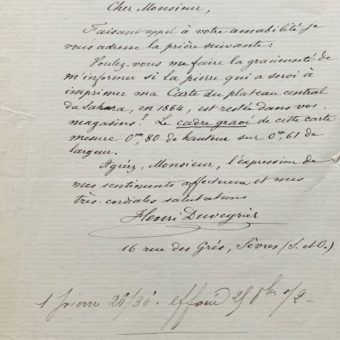 Cher Monsieur,
Faisant appel à votre amabilité je
vous adresse la prière suivante:
Voulez-vous me faire la gracieuseté de
m'informer si la pierre qui a servi à
imprimer ma Carte du plateau central
du Sahara, en 1864, est restée dans vos
magasins? Le cadre gravé de cette carte
mesure 0m,80 de hauteur sur 0m,61 de
largeur.
Agréez, Monsieur, l'expression de
mes sentiments affectueux et mes
très-cordiales salutations
Henri Duveyrier
16 rue des Grès, Sèvres (S. et O.)
1 pierre 26/36. effacé